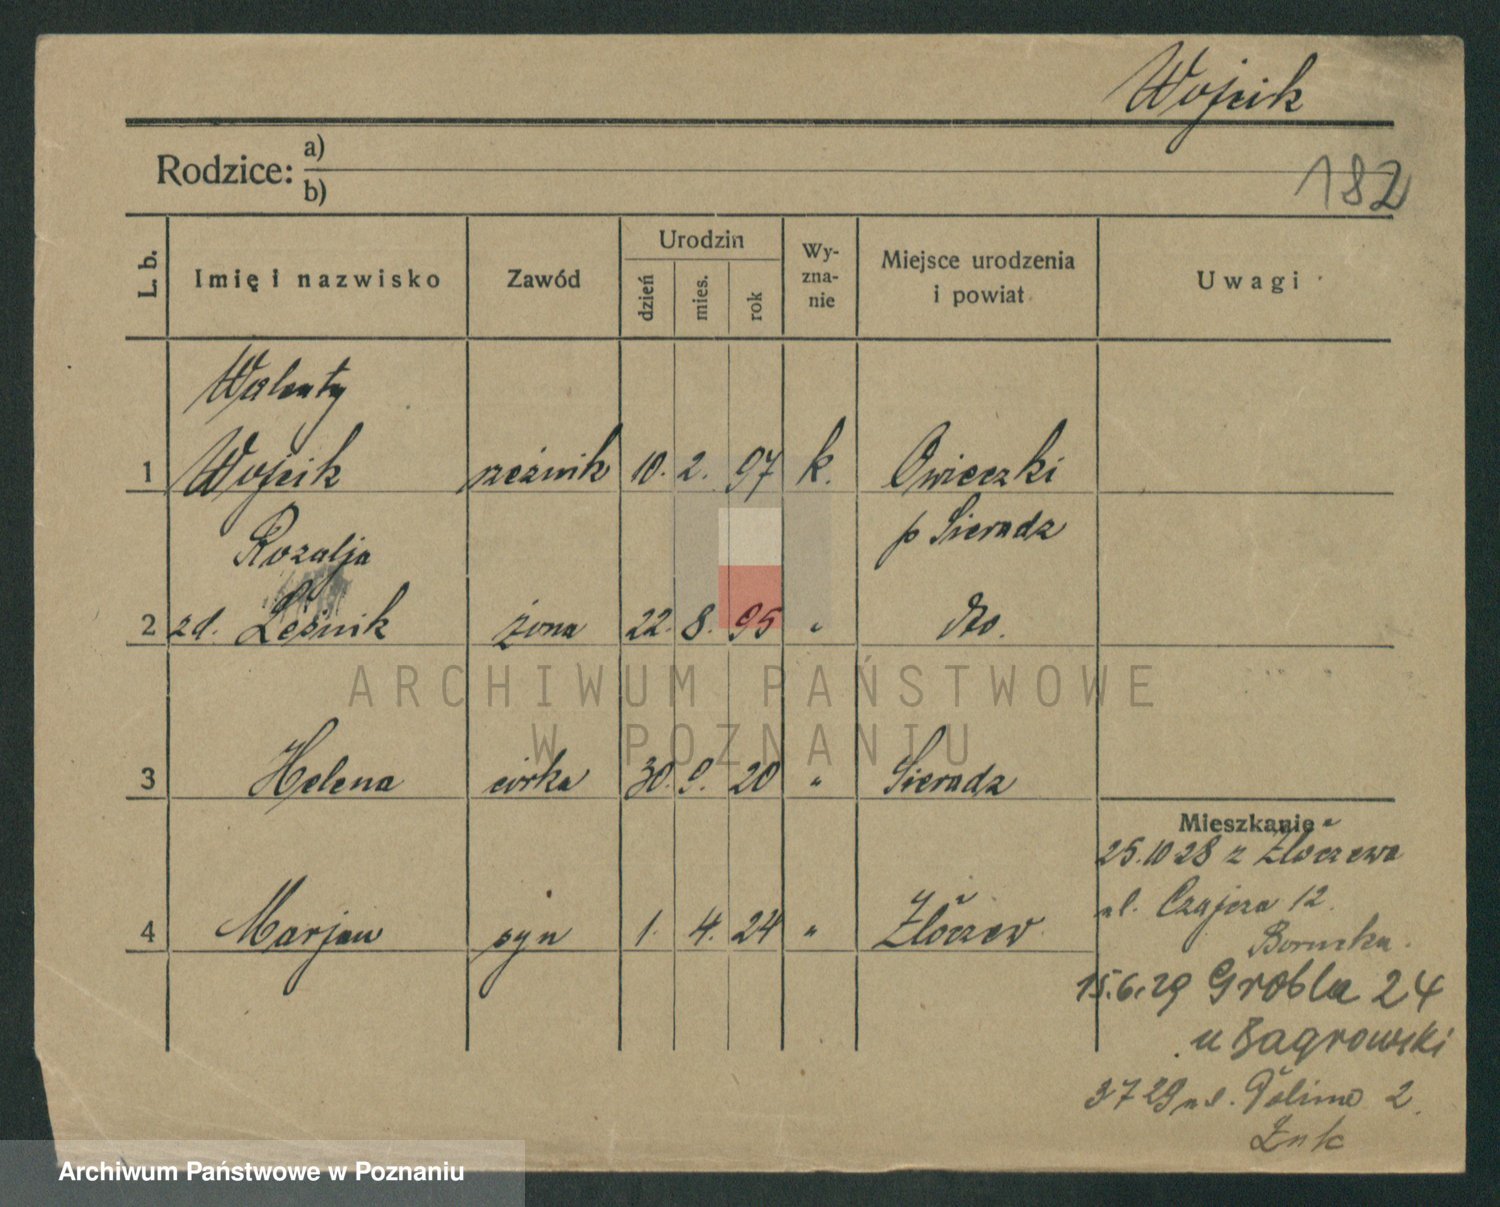 Wojcik
Rodzice: a)
b)
182
L. b.
Imię i nazwisko
Zawód
Urodzin
dzień
mies.
rok
Wy-
zna-
nie
Miejsce urodzenia
i powiat
Uwagi
Walenty
1 Wojcik rzeźnik 10. 2. 97 k. Owieczki
p Sieradz
Rozalja
2 zd. Leśnik żona 22. 8. 95 " dto.
3 Helena córka 30. 9. 20 " Sieradz
4 Marjan syn 1. 4. 24 " Złoczew
Mieszkanie
25.10 28 z Złoczewa
ul. Czajcza 12
15.6.29 Grobla 24
u Bagrowski
3 7 29 ul.
2
ARCHIWUM PAŃSTWOWE
W POZNANIU
Archiwum Państwowe w Poznaniu